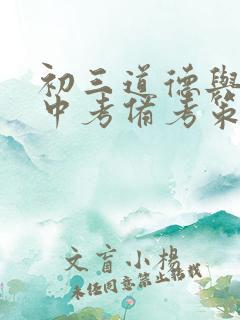 初三道德與
中考備考策
文盲小楊
未经同意禁止转载